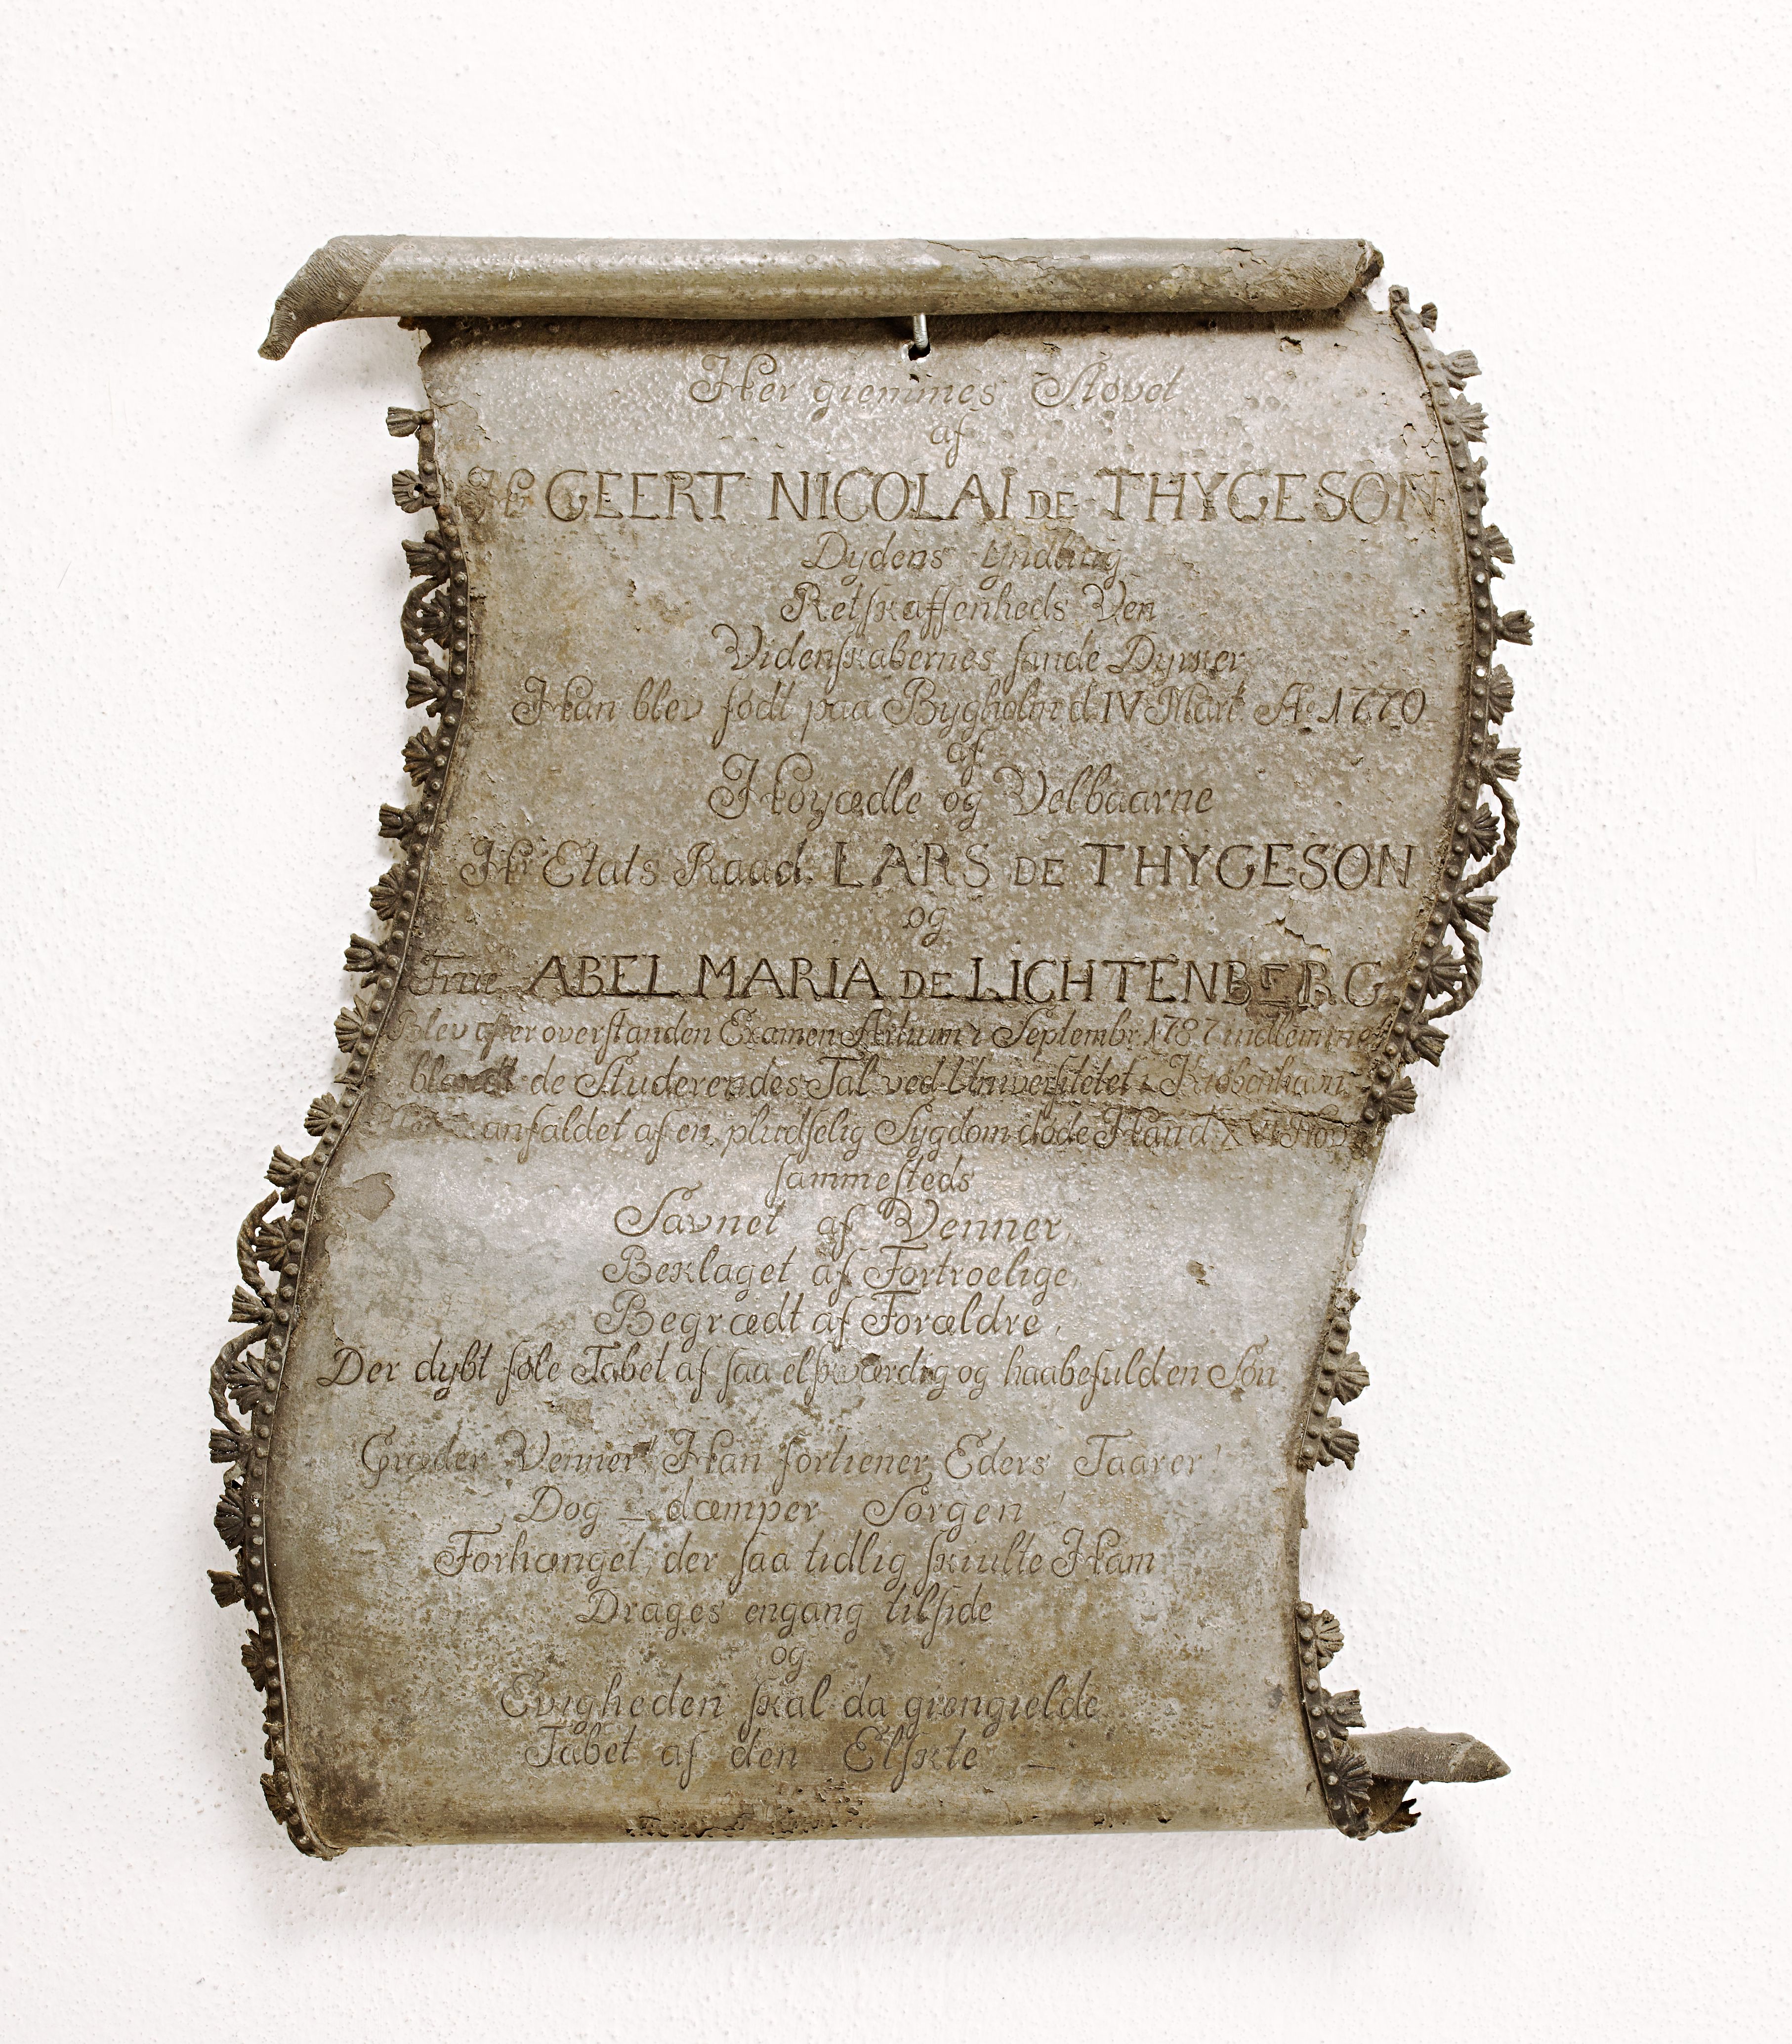 Her giemmes Støvet
af
Hr GEERT NICOLAI DE THYGESON
Dydens Yndling
Retskaffenheds Ven
Videnskabernes sande Dyrker
Han blev født paa Bygholm d. IV Mart. Ao 1770
af
Høyædle og Velbaarne
Hr Etats Raad. LARS DE THYGESON
og
Frue ABEL MARIA DE LICHTENBERG
Blev efter overstanden Examen Artium i Septembr. 1787 indlemmet
blandt de Studerendes Tal ved Universitetet i Kiøbenhavn
anfaldet af en pludselig Sygdom døde Han d. XVI Nov
sammesteds
Savnet af Venner,
Beklaget af Fortroelige,
Begrædt af Forældre,
Der dybt føle Tabet af saa elskværdig og haabefuld en Søn
Græder Venner! Han fortiener Eders Taarer!
Dog _ dæmper Sorgen!
Forhænget, der saa tidlig skiulte Ham
Drages engang tilside
og
Evigheden skal da giengielde
Tabet af den Elskte _